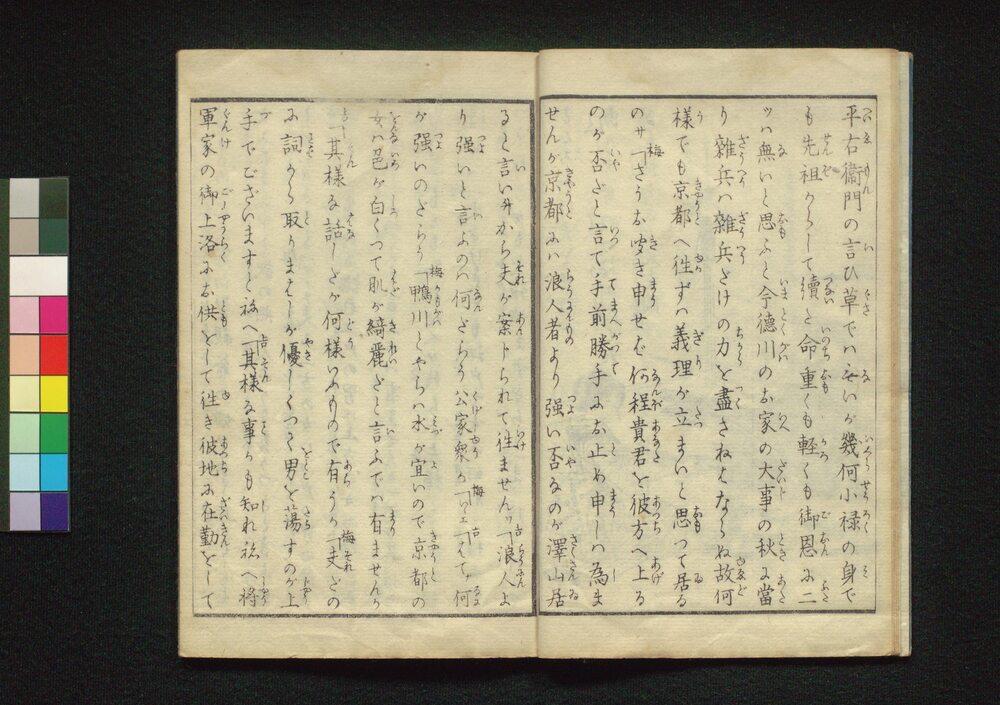 平右衛門の言ひ草でハ無いが幾何小禄の身で
も先祖からして續た命重くも軽くも御恩に二
ッハ無いと思ふと今徳川のお家の大事の秋に當
り雑兵ハ雑兵だけの力を盡さねばならぬ故何
様でも京都へ徃ずハ義理が立まいと思つて居る
のサ梅「さうお聞き申せば何程貴君を彼方へ上る
のが否だと言て手前勝手にお止め申しハ為ま
せんが京都にハ浪人者より強い否なのが澤山居
ると言い升から夫が案じられて徃ません吉「浪人よ
り強いと言ふのハ何だらう公家衆か梅「イヽエ吉「そして何
が強いのだらう梅「鴨川とやらハ水が宜いので京都の
女ハ色が白くつて肌が綺麗だと言ふでハ有ませんか
吉「其様な話しだが何様いふもので有うか梅「夫だの
に詞から取りまわしが優しくつて男を蕩すのが上
手でございますと祢へ吉「其様な事かも知れ祢へ將
軍家の御上洛にお供をして徃き彼地に在勤をして